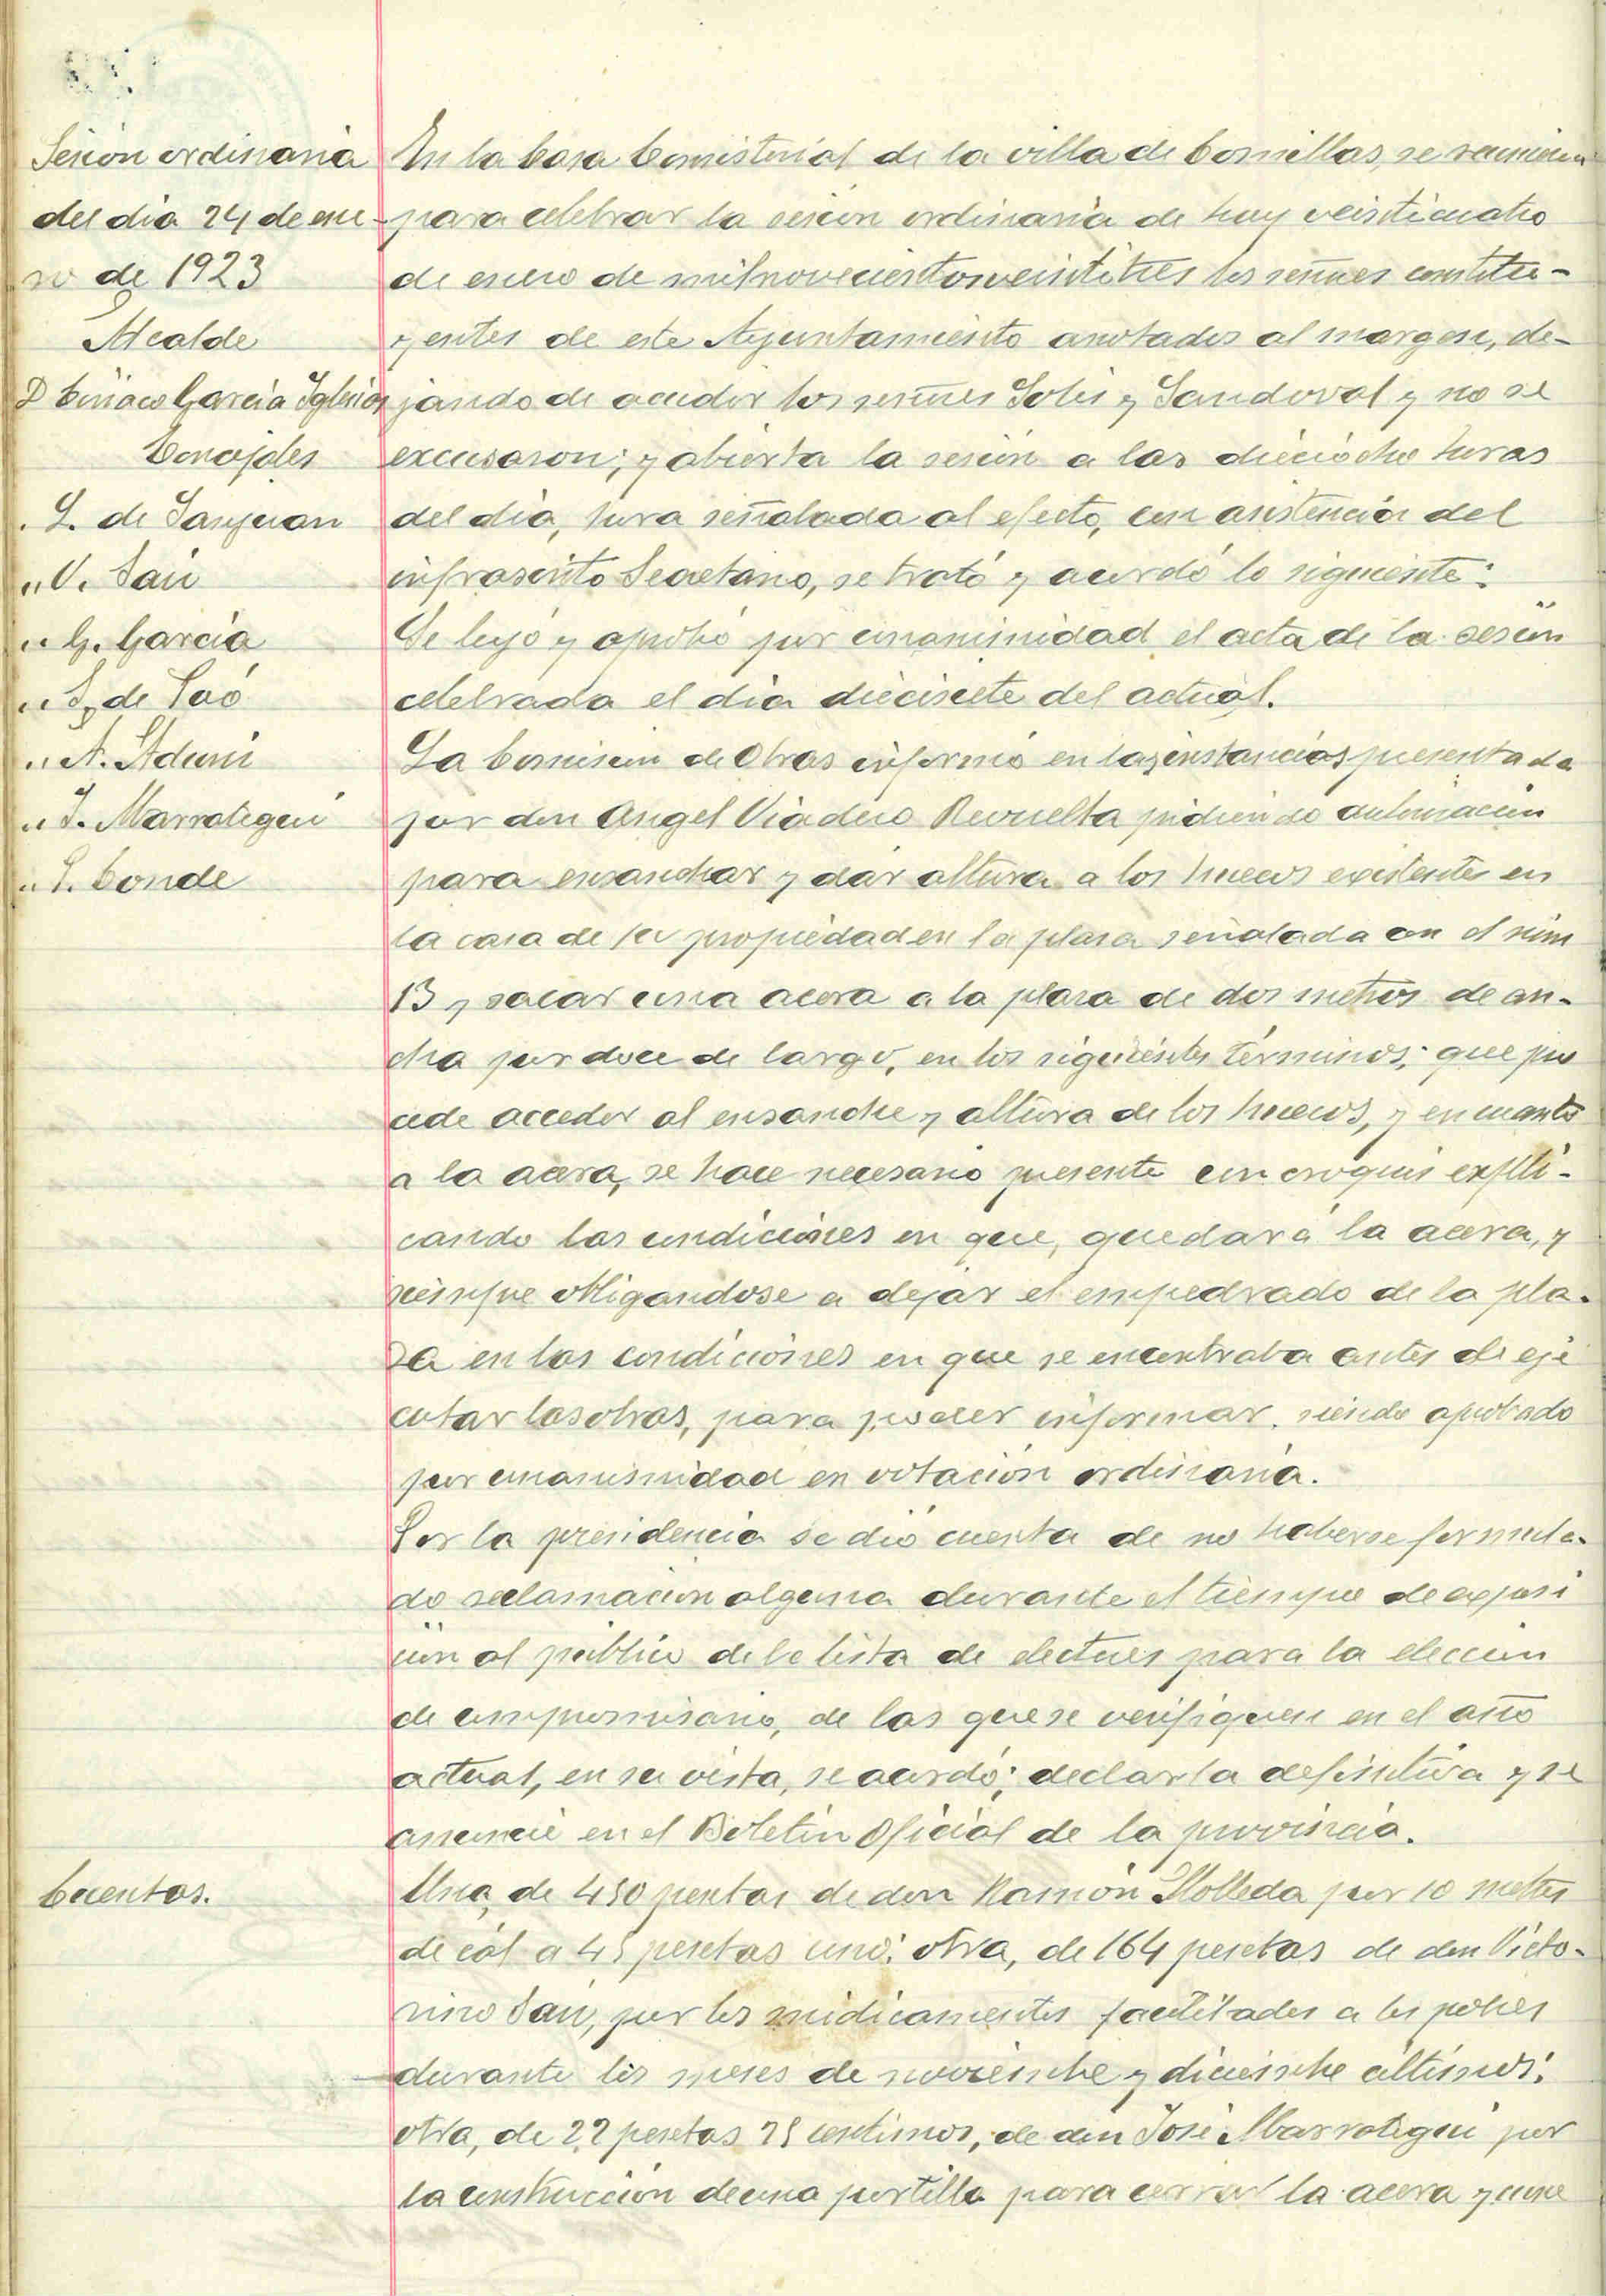 Sesión ordinaria
del dia 24 de ene-
ro de 1923
Alcalde
D Ciriaco García Iglesias
Concejales
. L. de Sanjuan
" V. Saiz
" G. García
" S. de Poó
" A. Aduni
" J. Marrotegui
" P. Conde
En la Casa Consistorial de la villa de Comillas, se reunieron
para celebrar la sesión ordinaria de hoy veinticuatro
de enero de milnovecientosveintitres los señores constitu-
yentes de este Ayuntamiento anotados al margen, de-
jando de acudir los señores Solis y Sandoval y no se
excusaron; y abierta la sesión a las dieciocho horas
del dia, hora señalada al efecto, con asistencia del
infrascrito Secretario, se trató y acordó lo siguiente:
Se leyó y aprobó por unanimidad el acta de la sesión
celebrada el dia diecisiete del actual.
La Comision de Obras informó en las instancias presentada
por don Angel Viadero Revuelta pidiendo autorizacion
para ensanchar y dar altura a los huecos existentes en
la casa de su propiedad en la plaza señalada con el núm
13 y sacar una acera a la plaza de dos metros de an-
cha por doce de largo, en los siguientes términos: que pro
cede acceder al ensanche y altura de los huecos, y en cuanto
a la acera, se hace necesario presente un croquis expli-
cando las condiciones en que, quedará la acera, y
siempre obligandose a dejar el empedrado de la pla-
za en las condiciones en que se encontraba antes de eje
cutar las obras, para poder informar. siendo aprobado
por unanimidad en votación ordinaria.
Por la presidencia se dió cuenta de no haberse formula-
do reclamacion alguna durante el tiempo de exposi
ción al público de la lista de electores para la eleccion
de compromisario, de las que se verifiquen en el año
actual, en su vista, se acordó; declarla definitiva y se
anuncie en el Boletin Oficial de la provincia.
Cuentas.
Una, de 450 pesetas de don Ramón Molleda por 10 metros
de cal a 45 pesetas uno: otra, de 164 pesetas de don Victo-
rino Saiz, por los medicamentos facilitados a los pobres
durante los meses de noviembre y diciembre últimos:
otra, de 22 pesetas 75 centimos, de don José Marrotegui por
la construcción de una portilla para cerrar la acera y una